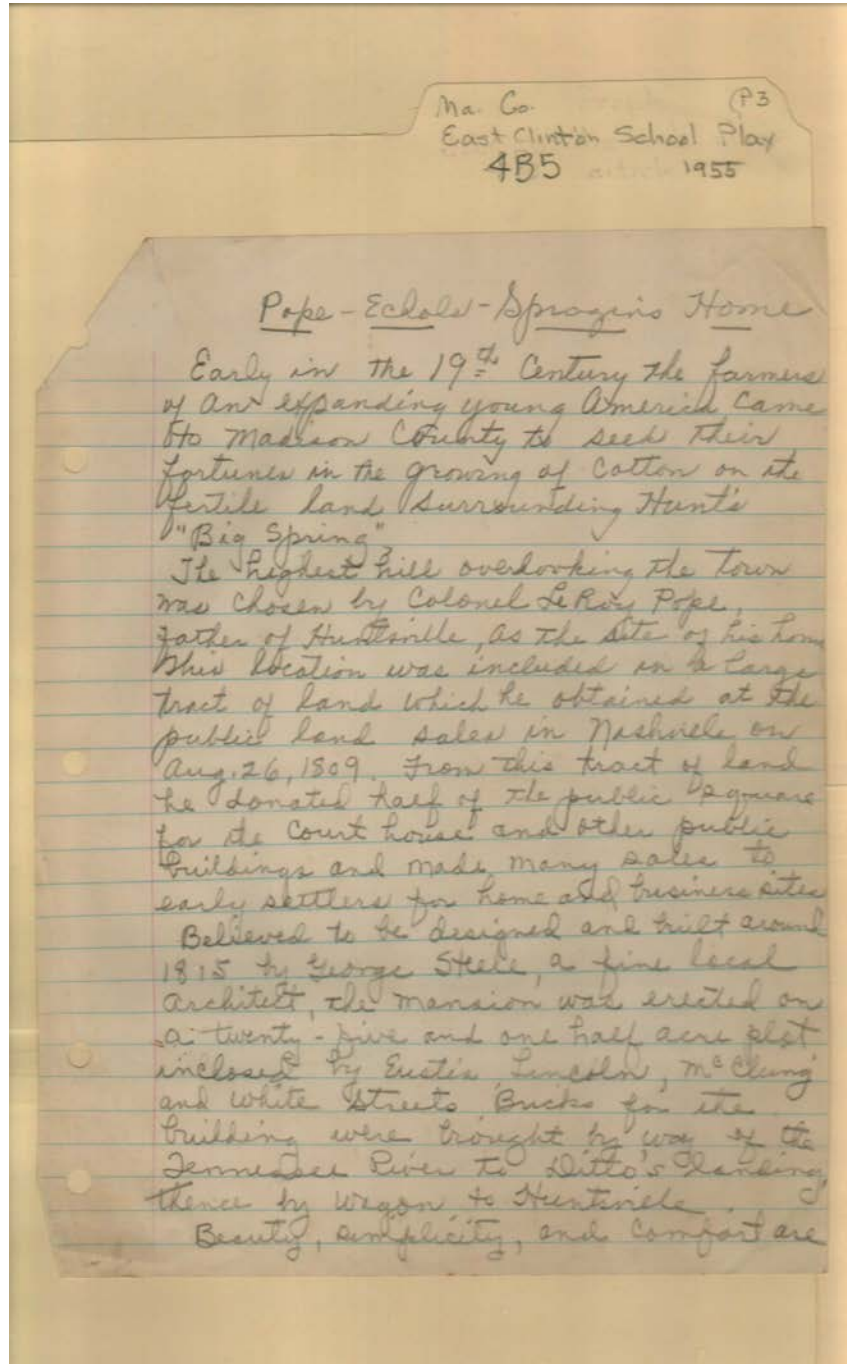 Ma. Co. P3
East Clinton School Play
4B5 1955
Pope - Echols - Spragins Home
Early in the 19th Century the farmers
of an expanding young America came
to Madison County to seed their
fortunes in the growing of Cotton on the
fertile land surrounding Hunt's
"Big Spring".
The highest hill overlooking the town
was chosen by Colonel LeRoy Pope,
father of Huntsville, as the site of his home
This location was included in a large
tract of land which he obtained at the
public land sales in Nashville on
Aug. 26, 1809. From this tract of land
he donated half of the public square
for the Court house and other public
buildings and made many sales to
early settlers for home and business sites
Believed to be designed and built around
1815 by George Steele, a fine local
architect, the mansion was erected on
a twenty-five and one half acre plot
inclosed by Eustis Lincoln, McClung
and White Streets. Bricks for the
building were brought by way of the
Tennessee River to Ditto's Landing,
thence by wagon to Huntsville.
Beauty, simplicity, and comfort are